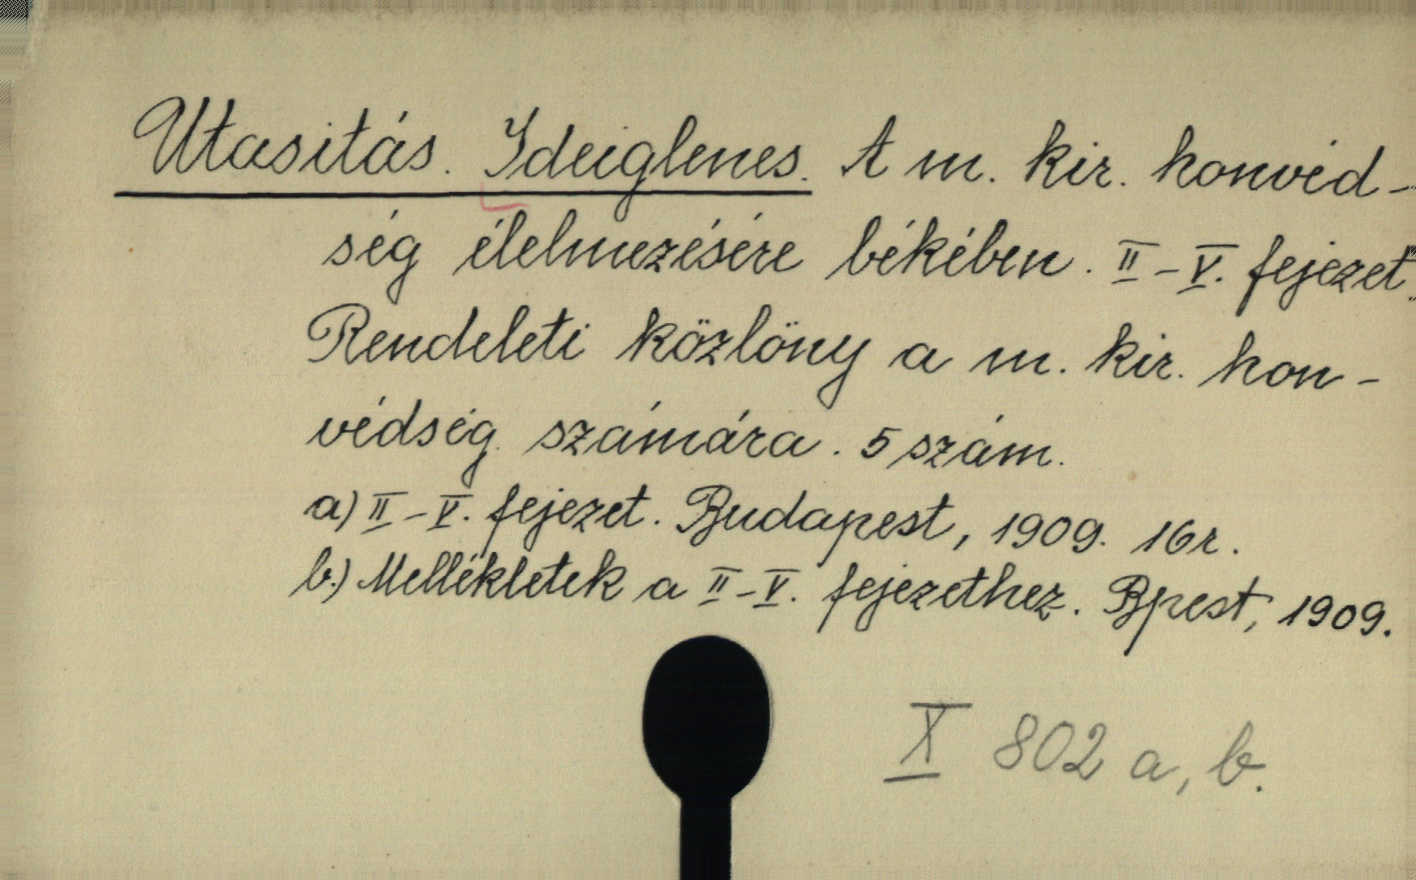 Utasitás. Ideiglenes. A m. kir. honvéd-
ség élelmezésére békében. II-V. fejezet.
Rendeleti közlöny a m. kir. hon-
védség számára. 5 szám.
a) II-V. fejezet. Budapest, 1909. 16r.
b.) Mellékletek a II-V. fejezethez. Bpest, 1909.
X 802 a, b.